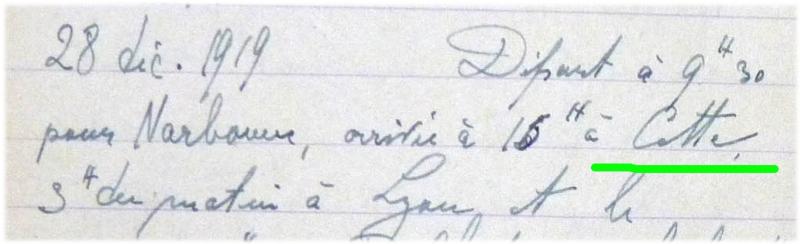 28 déc. 1919 Départ à 9 H 30
pour Narbonne, arrivée à 15 H à Cette,
3 H du matin à Lyon et le